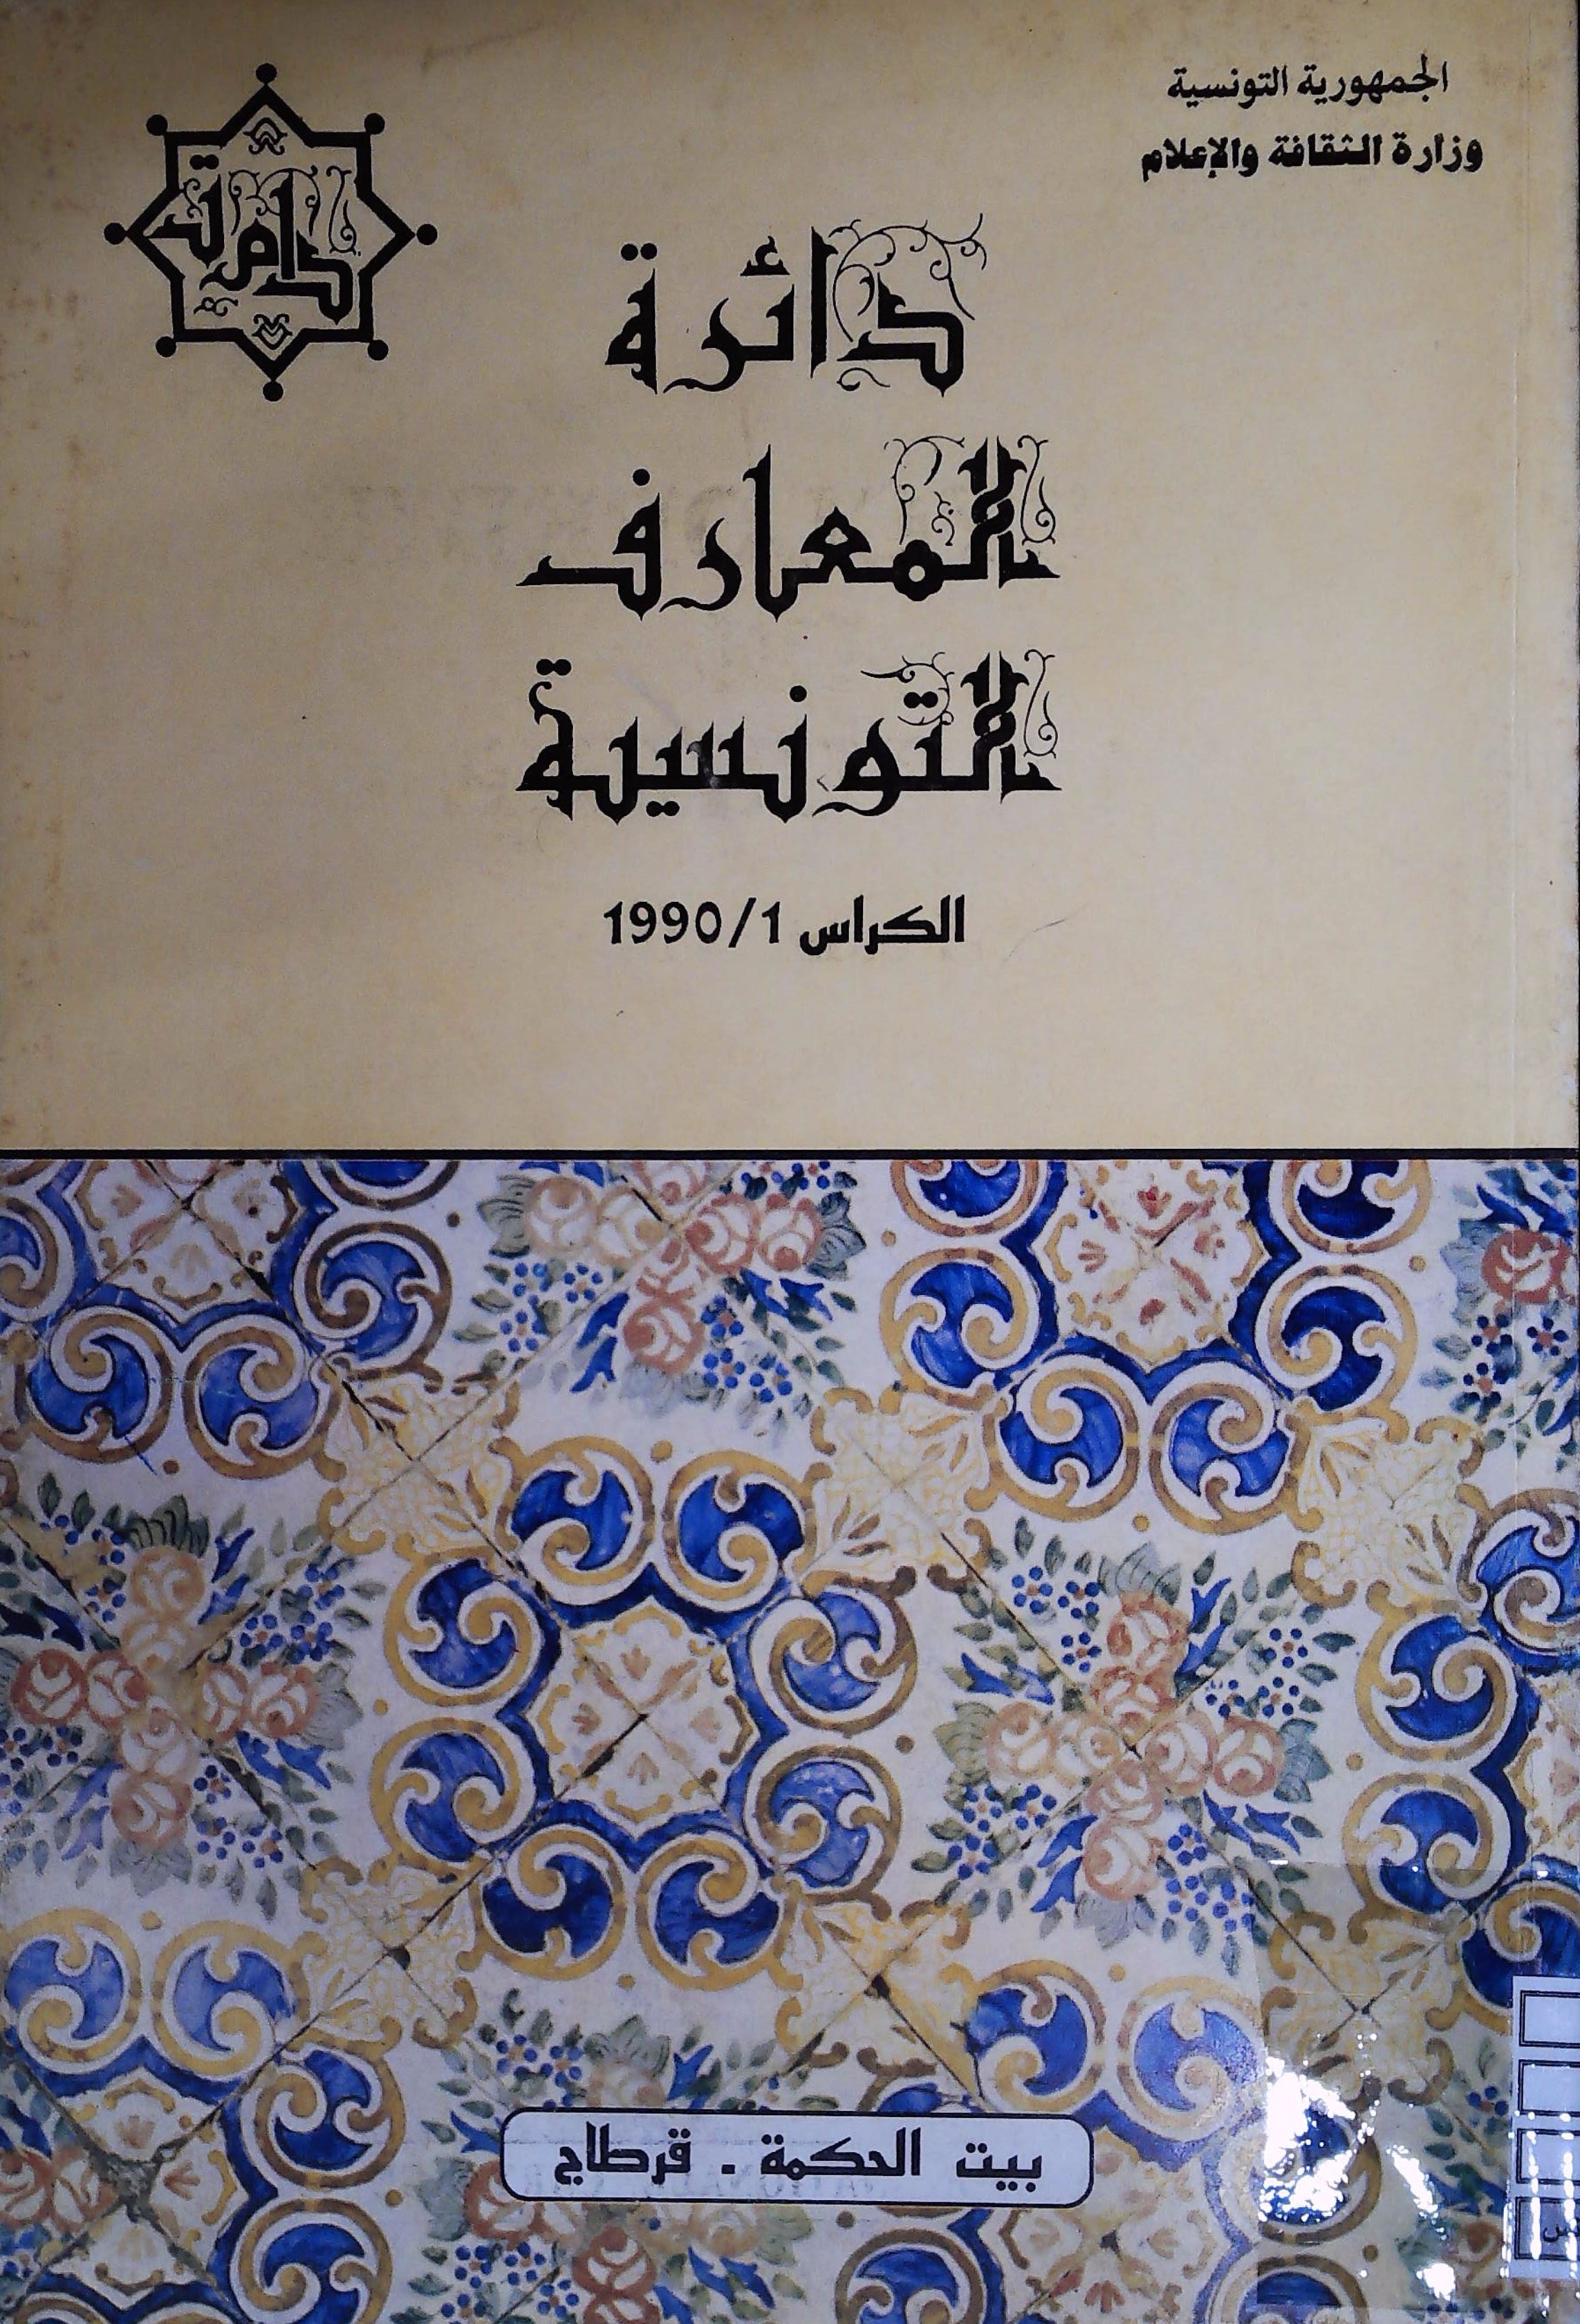 الجمهورية التونسية
وزارة الثقافة والإعلام
دائرة
المعارف
التونسية
الكراس 1/1990
بيت الحكمة . قرطاج